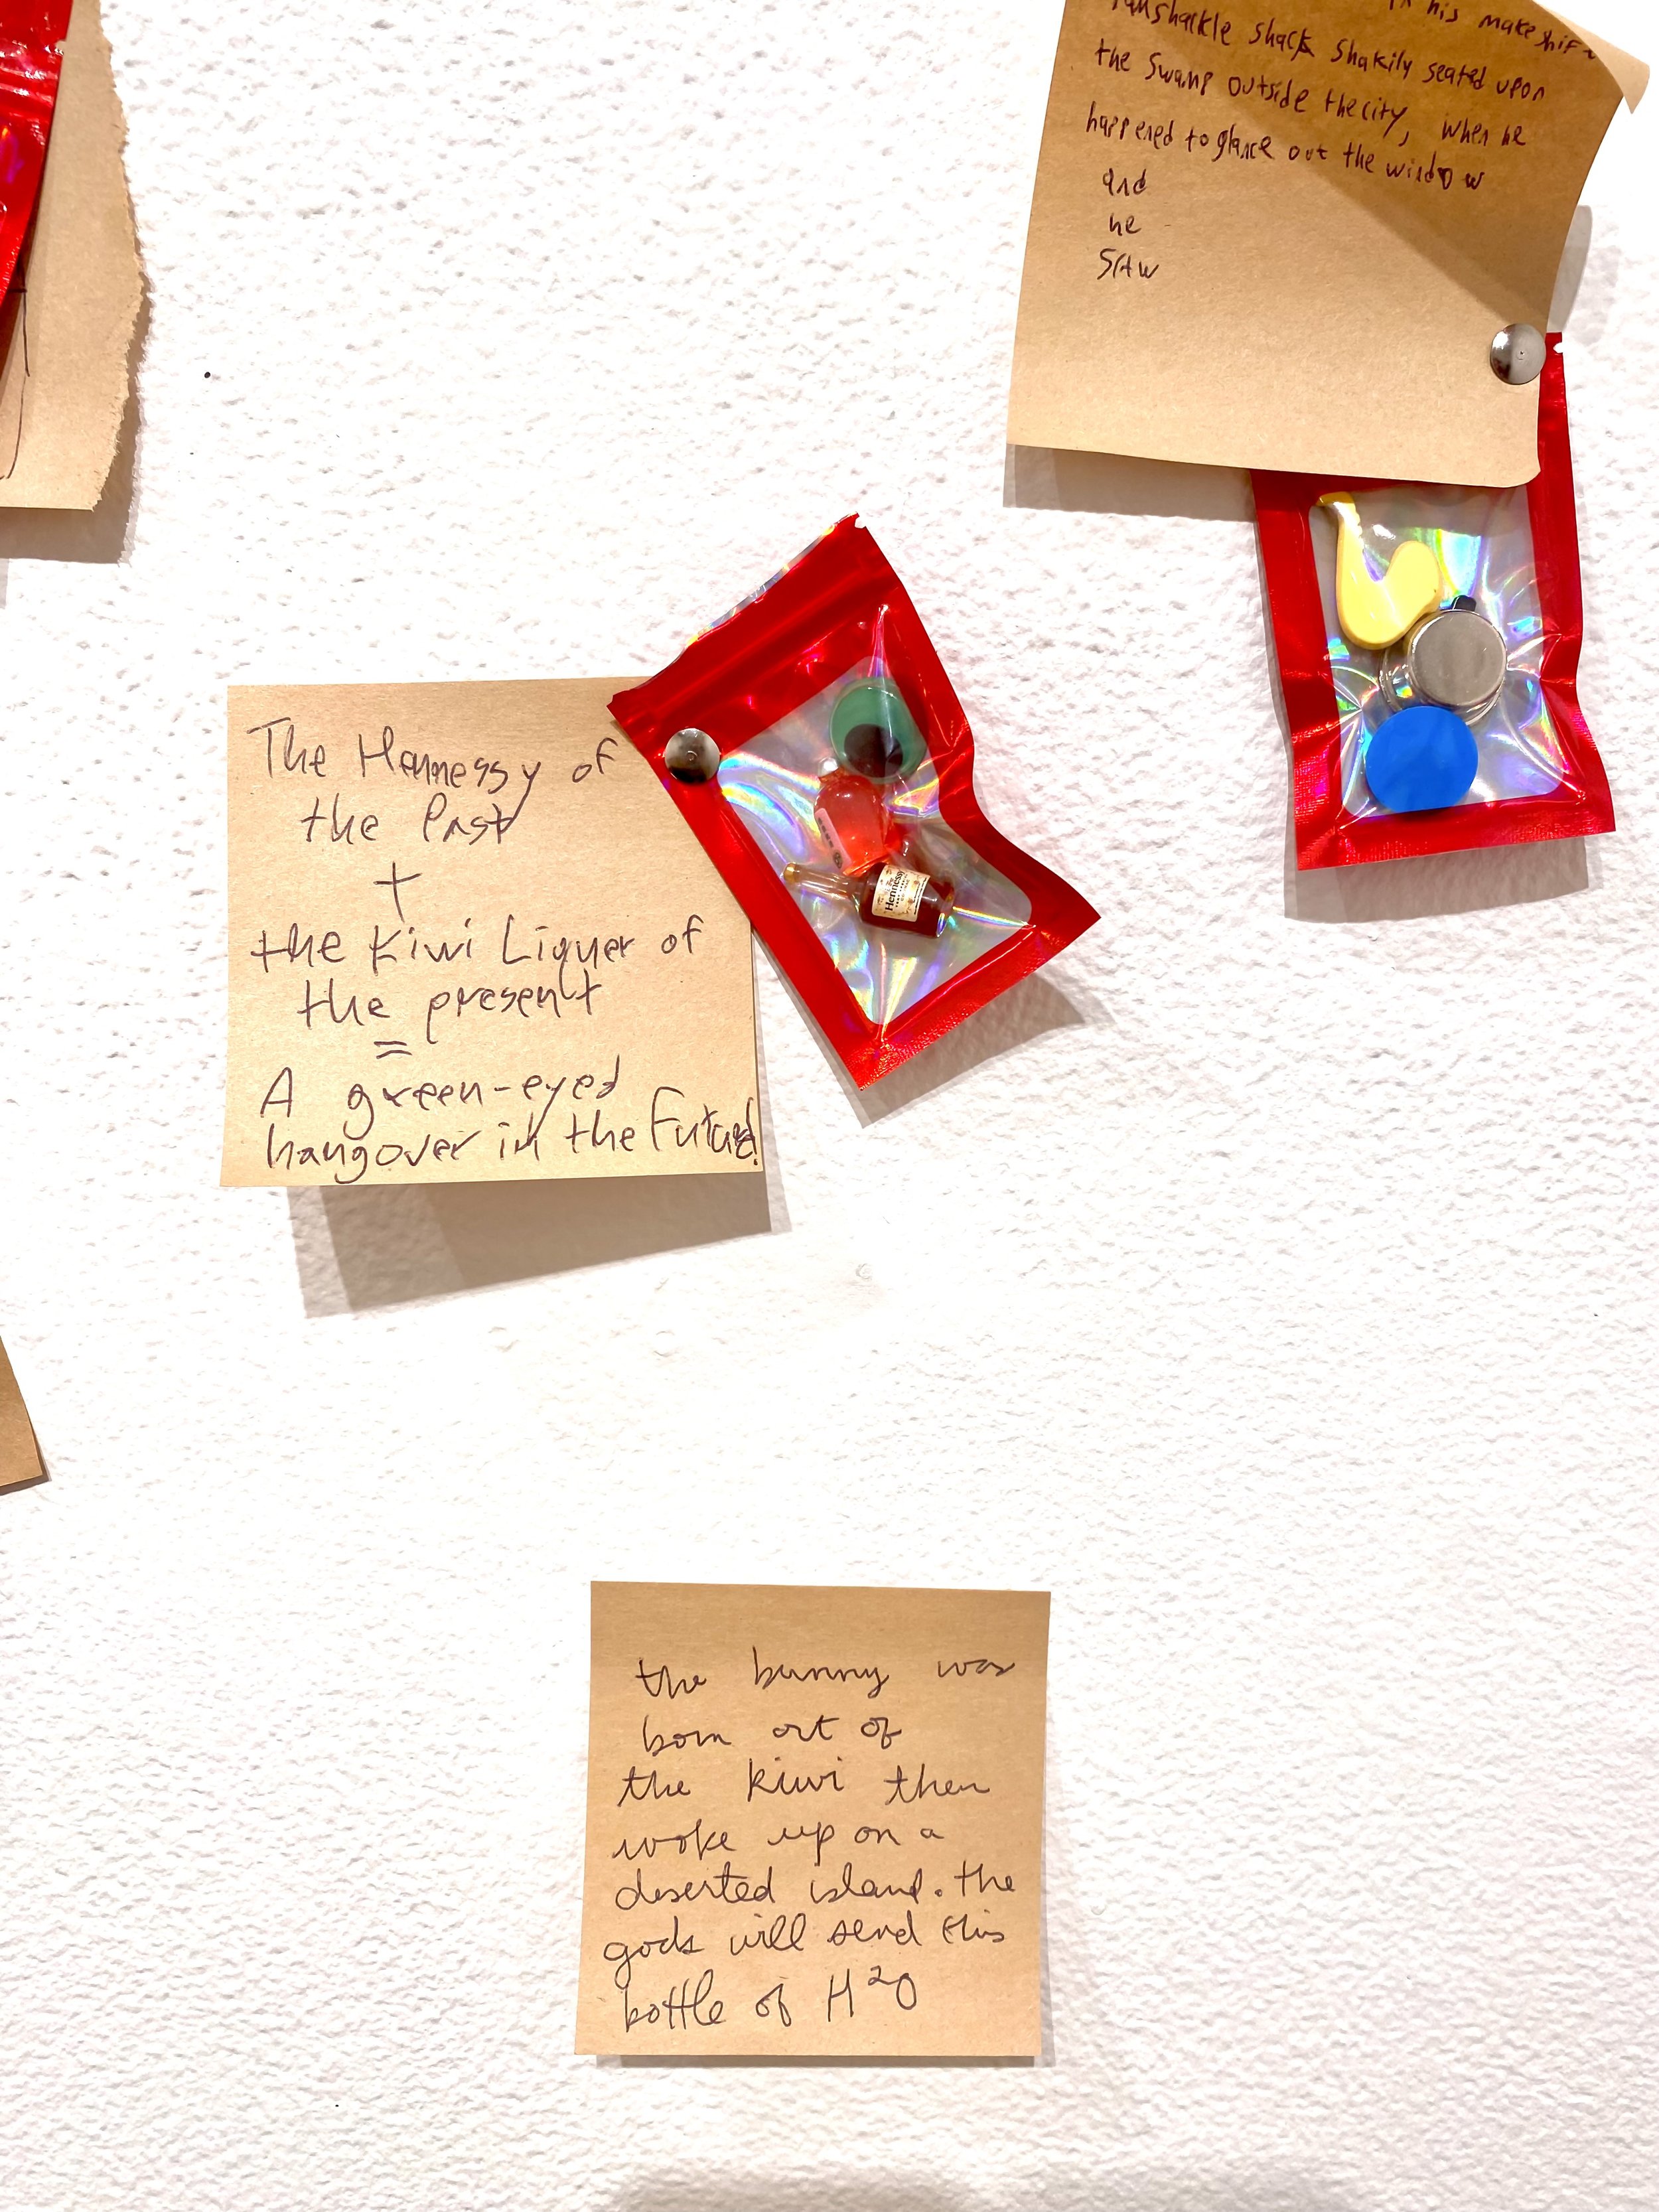 in his makeshift
ramshackle shack shakily seated upon
the swamp outside the city, when he
happened to glance out the window
and
he
SAW
The Hennessy of
the Past
+
the Kiwi Liquer of
the present
=
A green-eyed
hangover in the Future!
Hennessy
the bunny was
born out of
the kiwi then
woke up on a
deserted island. the
gods will send this
bottle of H²O